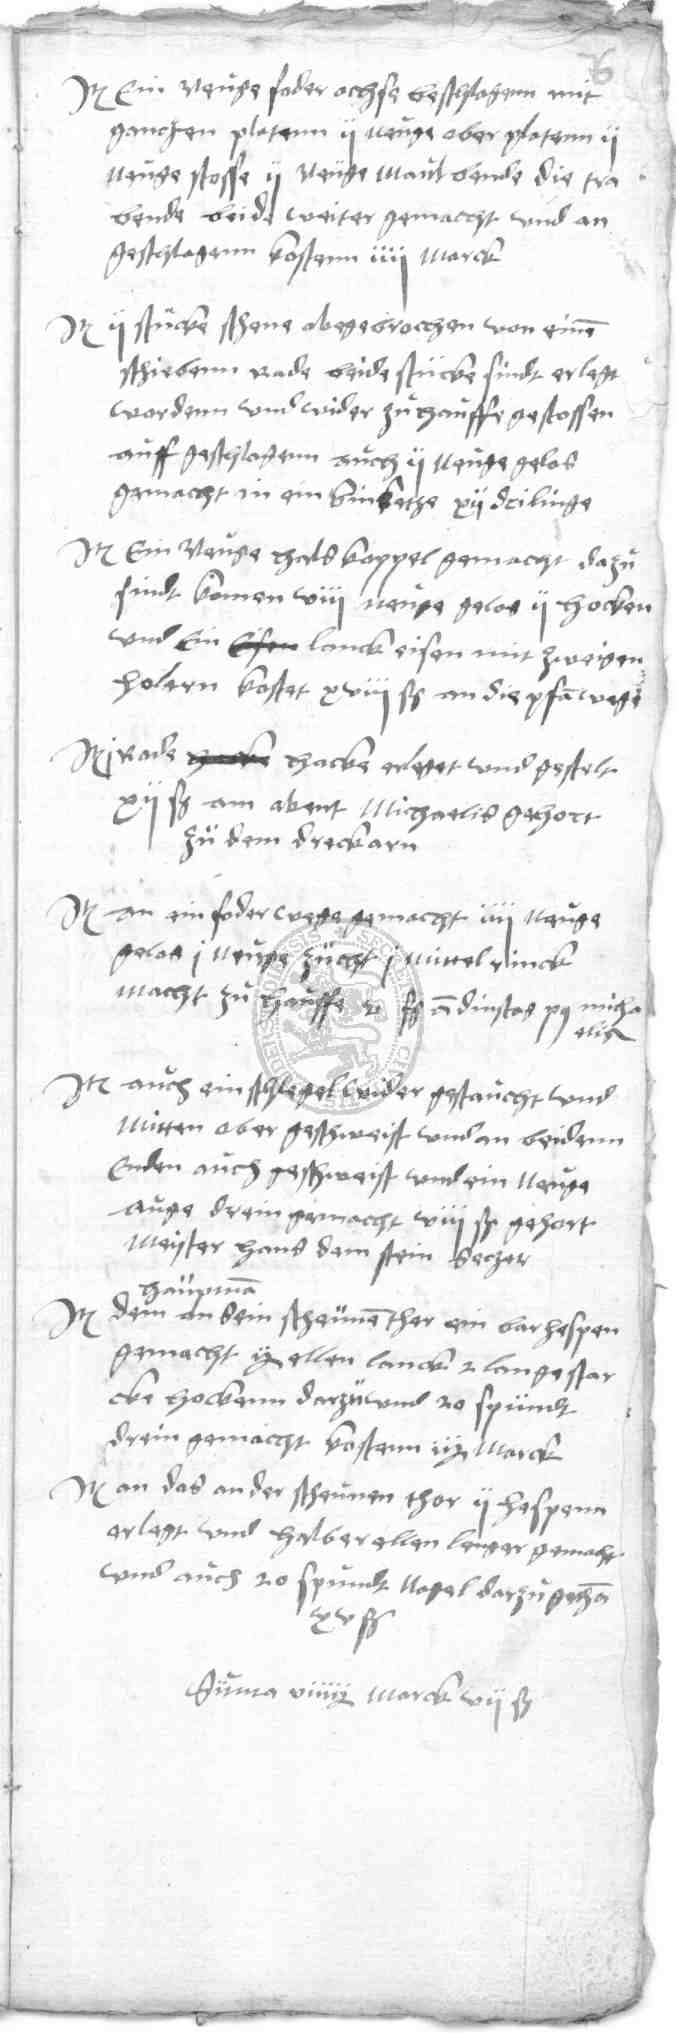 6
Jt Ein Neuge foder achse beschlagenn mit
gantzen platenn ij Neuge ober platenn ij
Neuge stosse ij Neuge Maul bende die tra
bende beide weiter gemacht vnd an
geschlagenn kostenn iiij Marck
Jt ij stucke schene abegebrocchen von eine
schiebenn rade beide stucke sindt erlegt
wordenn vnd wider zu hauffe gestossen
auff geschlagenn auch ij Neuge gelos
gemacht in ein xij drilinge
Jt Ein Neuge hals koppel gemacht dazu
sindt komen viij neuge gelos ij hocken
vnd Ein Eisen lanck eisen mit zweigen
holern kostet xviij ß an die pfa wege
Jt j Rade hacke hacke erleget vnd gestelt
xij ß am abent Michaelis gehort
zu dem dreckarn
Jt an ein foder wege gemacht iiij Neuge
gelos j Neuge zucht j Mittel rinck
Macht zu hauffe ß a dinstag micha
elis
Jt auch ein schlegel wider gestaucht vnd
Mitten ober geschweist vnd an beidenn
Enden auch geschweist vnd ein Neuge
auge drein gemacht viij ß gehort
Meister Hans dem stein seczer
haupma
Jt dem an sein scheune ther ein bar hespen
gemacht ellen lanck 2 lange star
cke hockenn darzu vnd 20 spundt
drein gemacht kostenn Marck
Jt an das ander scheunen thor ij hespenn
erlegt vnd halber ellen lenger gemacht
vnd auch 20 spundt Nagel darzu getha
xv ß
Suma Marck vij ß